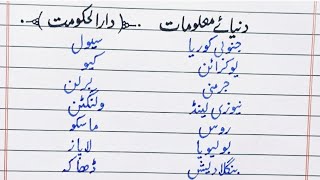 دنیائے معلومات .﴿دارالحکومت﴾.
جنوبی کوریا سیول
یوکرائن کیو
جرمنی برلن
نیوزی لینڈ ولنگٹن
روس ماسکو
بولیویا لاپاز
بنگلادیش ڈھاکہ